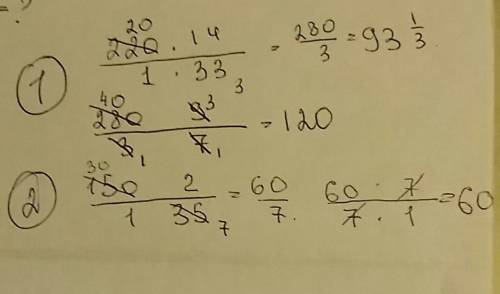 = ?
20
220 · 14 / 1 · 33 3 = 280/3 = 93 1/3.
1
40
280 9 3 / 3 1 7 1 = 120
2
30
150 2 / 1 35 7 = 60/7. 60 · 7 / 7 · 1 = 60